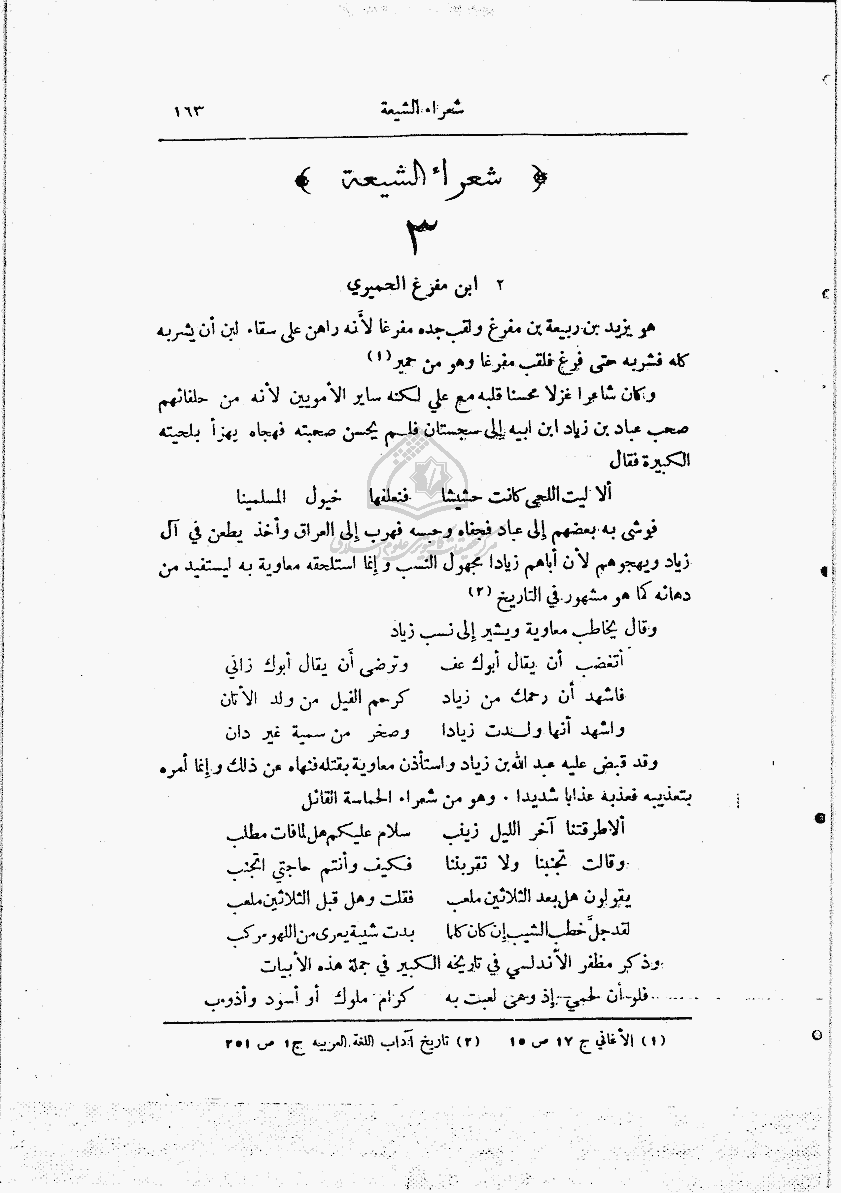 شعراء الشيعة ١٦٣
﴿ شعراء الشيعة ﴾
٣
٢ ابن مفرغ الحميري
هو يزيد بن ربيعة بن مفرغ ولقب جده مفرغا لأنه راهن على سقاء لبن أن يشربه
كله فشربه حتى فرغ فلقب مفرغا وهو من حمير (١)
وكان شاعرا غزلا محسنا قلبه مع علي لكنه ساير الأمويين لأنه من حلفائهم
صحب عباد بن زياد ابن ابيه إلى سجستان فلم يحسن صحبته فهجاه يهزأ بلحيته
الكبيرة فقال
ألا ليت اللحى كانت حشيشا فنعلفها خيول المسلمينا
فوشى به بعضهم إلى عباد فجفاه وحبسه فهرب إلى العراق وأخذ يطعن في آل
زياد ويهجوهم لأن أباهم زيادا مجهول النسب وإنما استلحقه معاوية به ليستفيد من
دهائه كما هو مشهور في التاريخ (٢)
وقال يخاطب معاوية ويشير إلى نسب زياد
أتغضب أن يقال أبوك عف وترضى أن يقال أبوك زاني
فاشهد أن رحمك من زياد كرحم الفيل من ولد الأتان
واشهد أنها ولدت زيادا وصخر من سمية غير دان
وقد قبض عليه عبد الله بن زياد واستأذن معاوية بقتله فنهاه عن ذلك وإنما أمره
بتعذيبه فعذبه عذابا شديدا . وهو من شعراء الحماسة القائل
ألا طرقتنا آخر الليل زينب سلام عليكم هل لما فات مطلب
وقالت تجنبنا ولا تقربننا فكيف وأنتم حاجتي اتجنب
يقولون هل بعد الثلاثين ملعب فقلت وهل قبل الثلاثين ملعب
لقد جل خطب الشيب إن كان كلما بدت شيبة يعرى من اللهو مركب
وذكر مظفر الأندلسي في تاريخه الكبير في جملة هذه الأبيات
فلو أن لحمي إذ وهى لعبت به كرام ملوك أو أسود وأذوب
(١) الأغاني ج ١٧ ص ١٥ (٢) تاريخ آداب اللغة العربيه ج١ ص ٢٥١